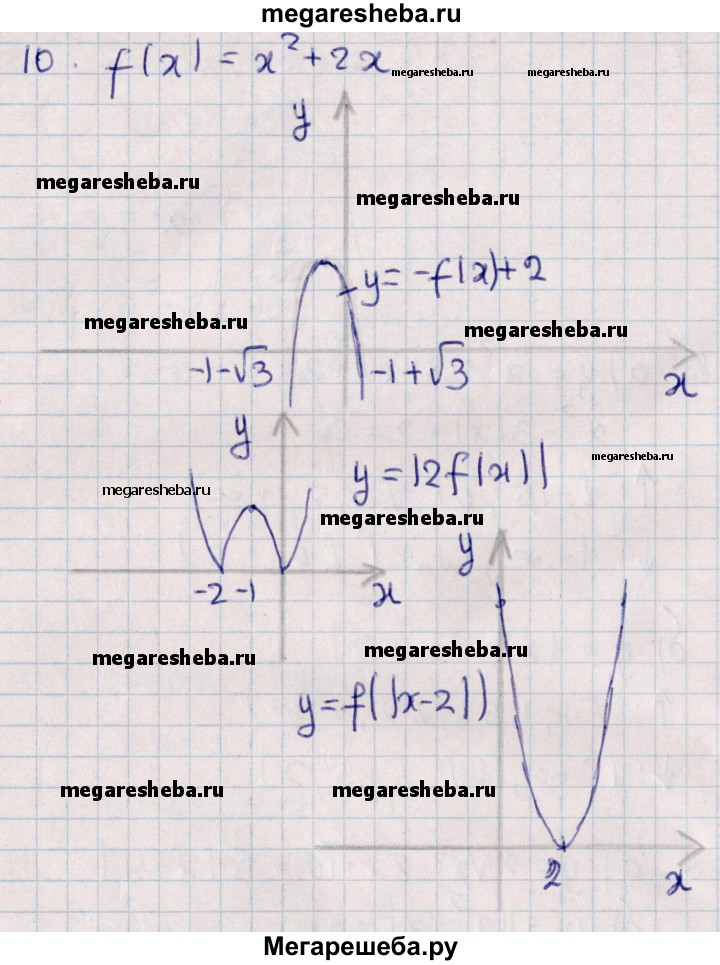 megaresheba.ru
10. f(x) = x² + 2x
megaresheba.ru megaresheba.ru
y
megaresheba.ru
megaresheba.ru
y = -f(x) + 2
megaresheba.ru
megaresheba.ru
-1-√3 -1+√3
x
y
megaresheba.ru
y = |2f(x)|
megaresheba.ru
megaresheba.ru
y
-2 -1 x
megaresheba.ru
megaresheba.ru
y = f(|x-2|)
megaresheba.ru
megaresheba.ru
2 x
Мегарешеба.ру